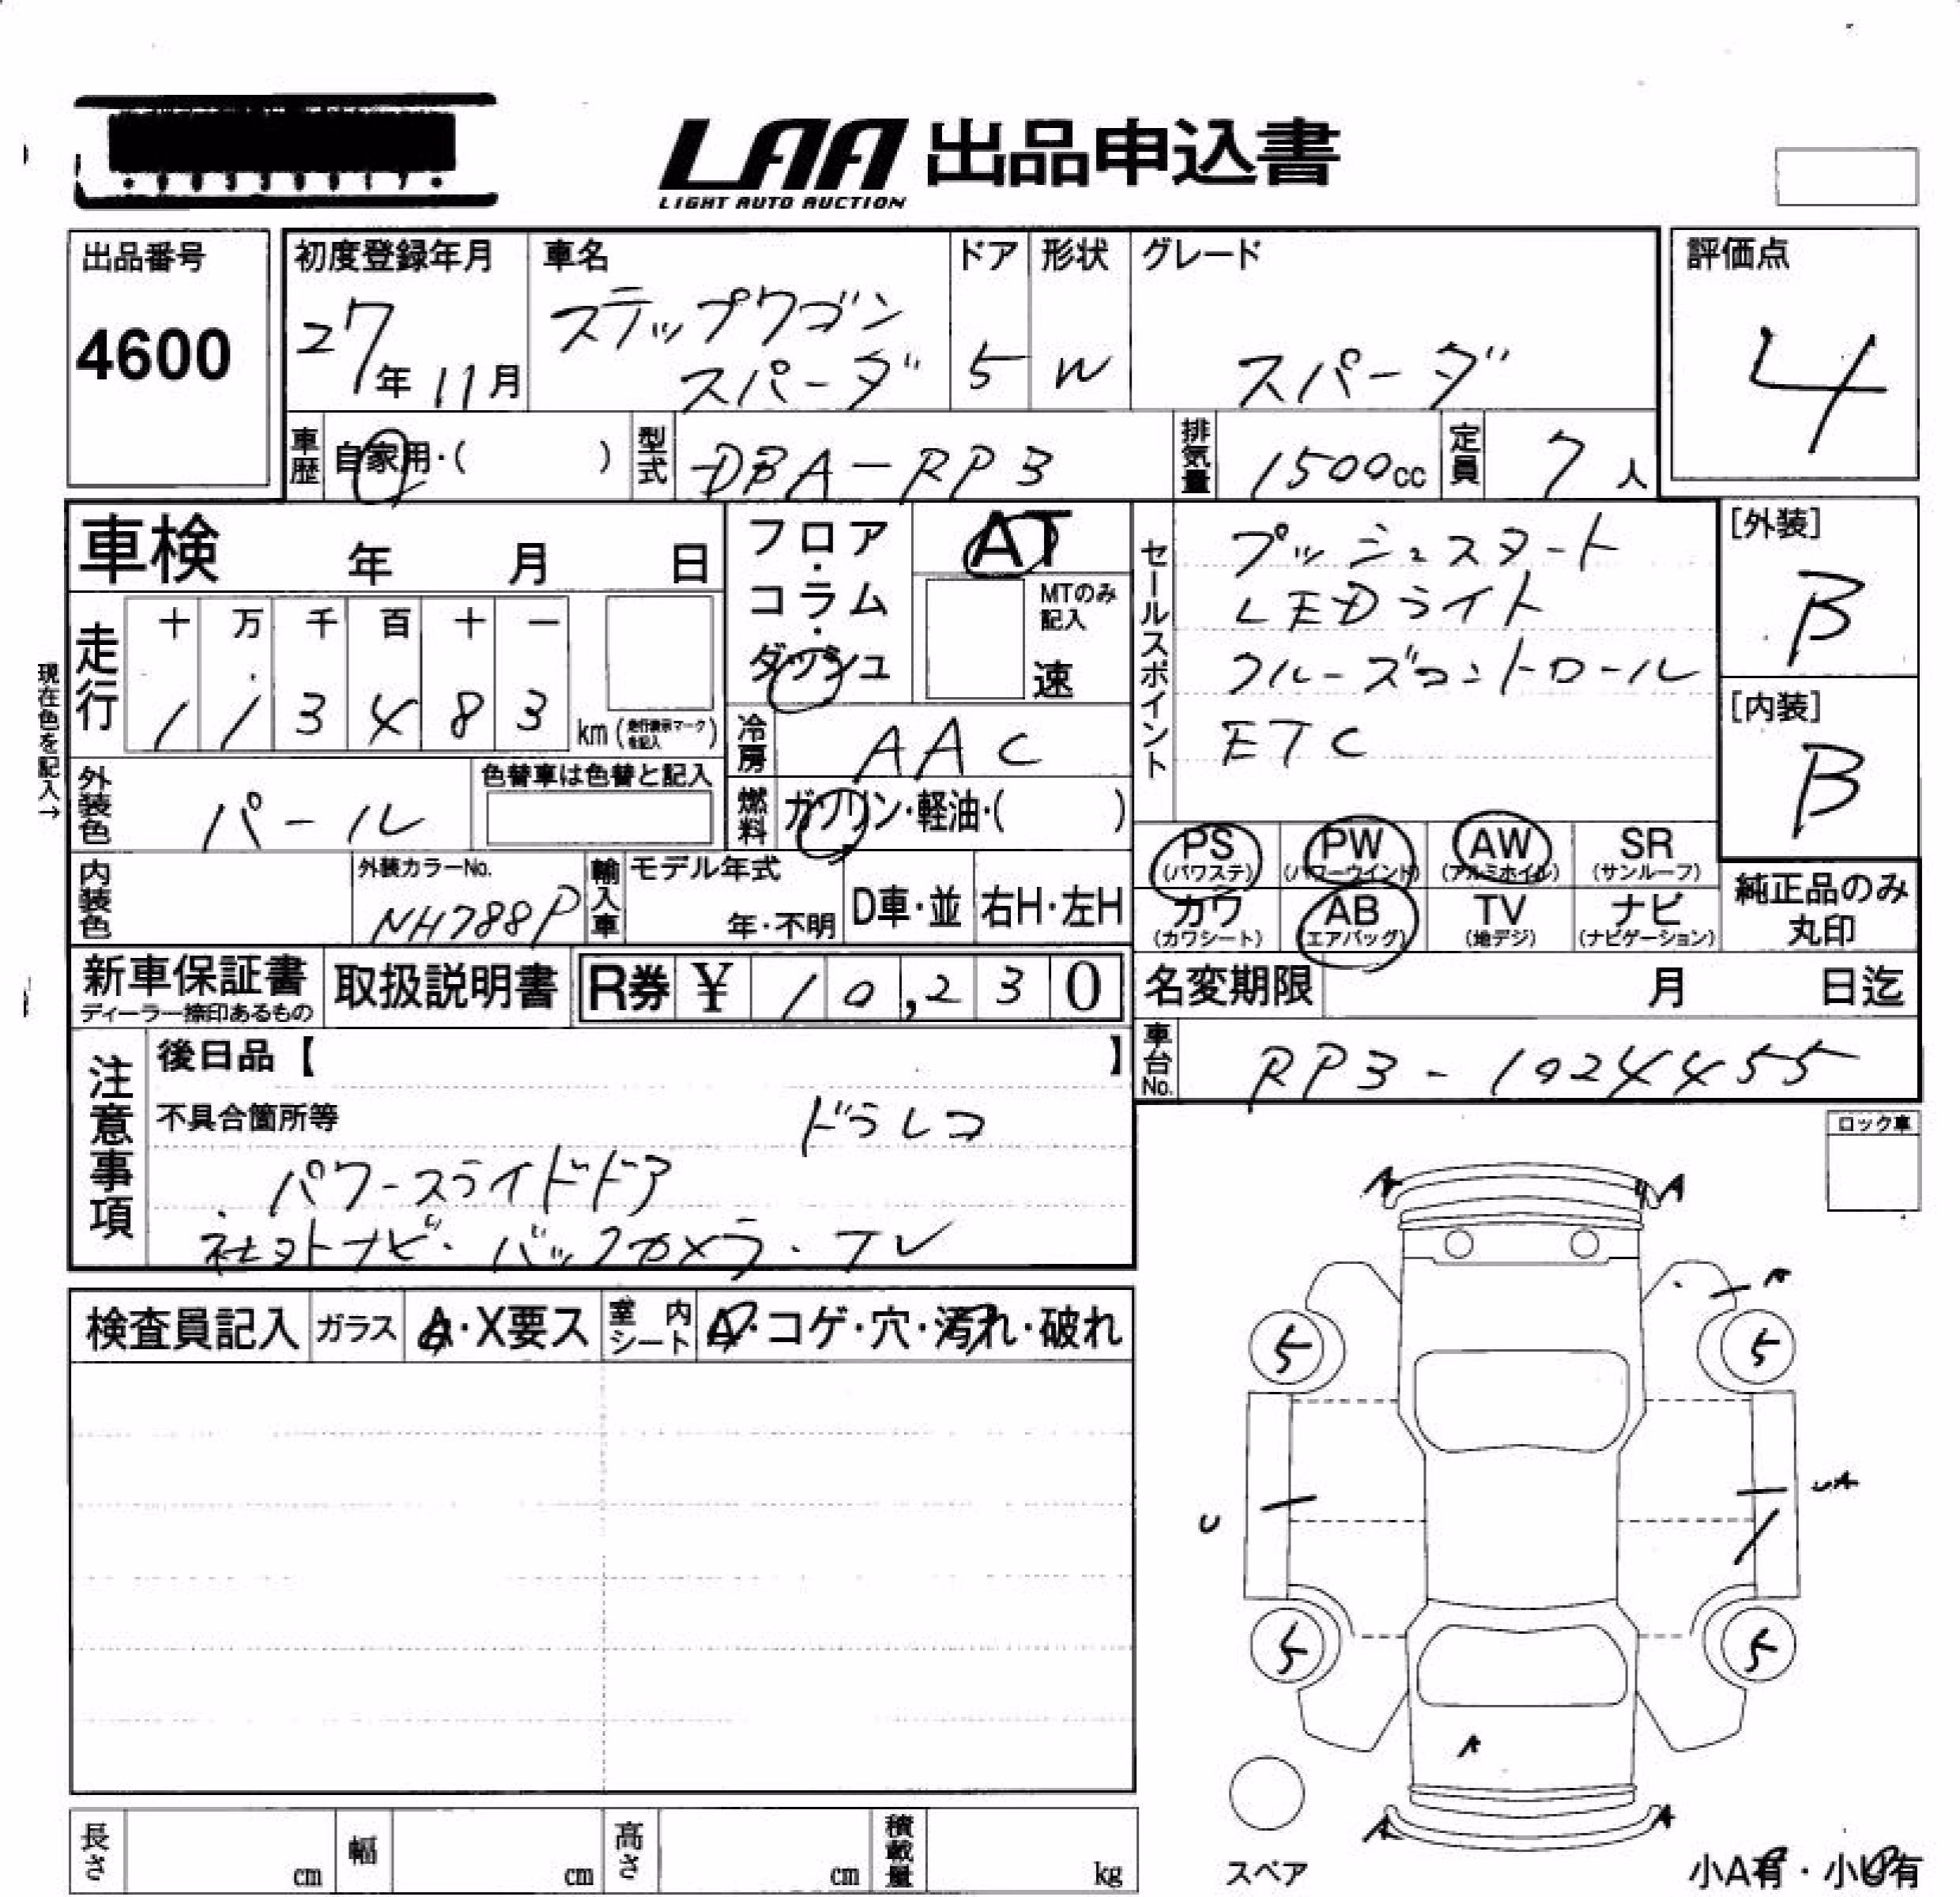 LAA 出品申込書
LIGHT AUTO AUCTION
出品番号
4600
初度登録年月
27年11月
車名
ステップワゴン
スパーダ
ドア
5
形状
W
グレード
スパーダ
評価点
4
車歴
自家用・( )
型式
DBA-RP3
排気量
1500cc
定員
7人
車検 年 月 日
フロア・コラム・ダッシュ
AT
MTのみ記入
速
セールスポイント
プッシュスタート
LEDライト
クルーズコントロール
ETC
[外装]
B
[内装]
B
現在色を記入→
走行
十 万 千 百 十 一
1 1 3 4 8 3
km(走行表示マークを記入)
冷房
AAC
外装色
パール
色替車は色替と記入
燃料
ガソリン・軽油・( )
PS (パワステ)
PW (パワーウインド)
AW (アルミホイル)
SR (サンルーフ)
カワ (カワシート)
AB (エアバッグ)
TV (地デジ)
ナビ (ナビゲーション)
純正品のみ丸印
内装色
外装カラーNo.
NH788P
輸入車
モデル年式
年・不明
D車・並
右H・左H
新車保証書
ディーラー捺印あるもの
取扱説明書
R券 ¥ 10,230
名変期限 月 日迄
車台No.
RP3-1024455
注意事項
後日品【 】
不具合箇所等
ドラレコ
パワースライドドア
社外ナビ・バックカメラ・TV
ロック車
検査員記入
ガラス
A・X要ス
室内シート
A・コゲ・穴・汚れ・破れ
A A
A
5 5
U UA
5 5
A
A A
スペア
小A有・小U有
長さ cm
幅 cm
高さ cm
積載量 kg